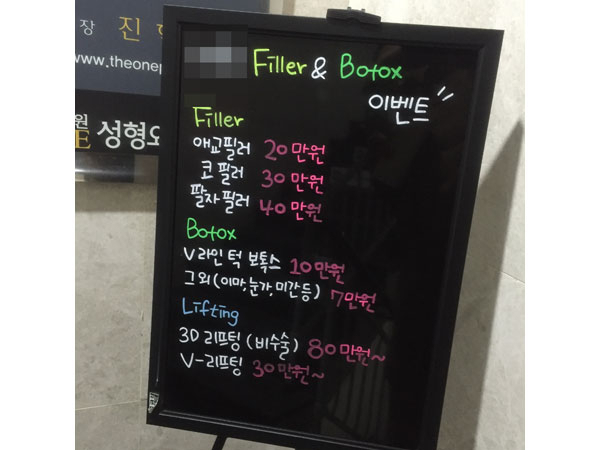 장 진
www.theonep
원
E 성형외
Filler & Botox
이벤트
Filler
애교필러 20만원
코필러 30만원
팔자필러 40만원
Botox
V라인 턱 보톡스 10만원
그외(이마,눈가,미간등) 7만원
Lifting
3D 리프팅 (비수술) 80만원~
V-리프팅 30만원~